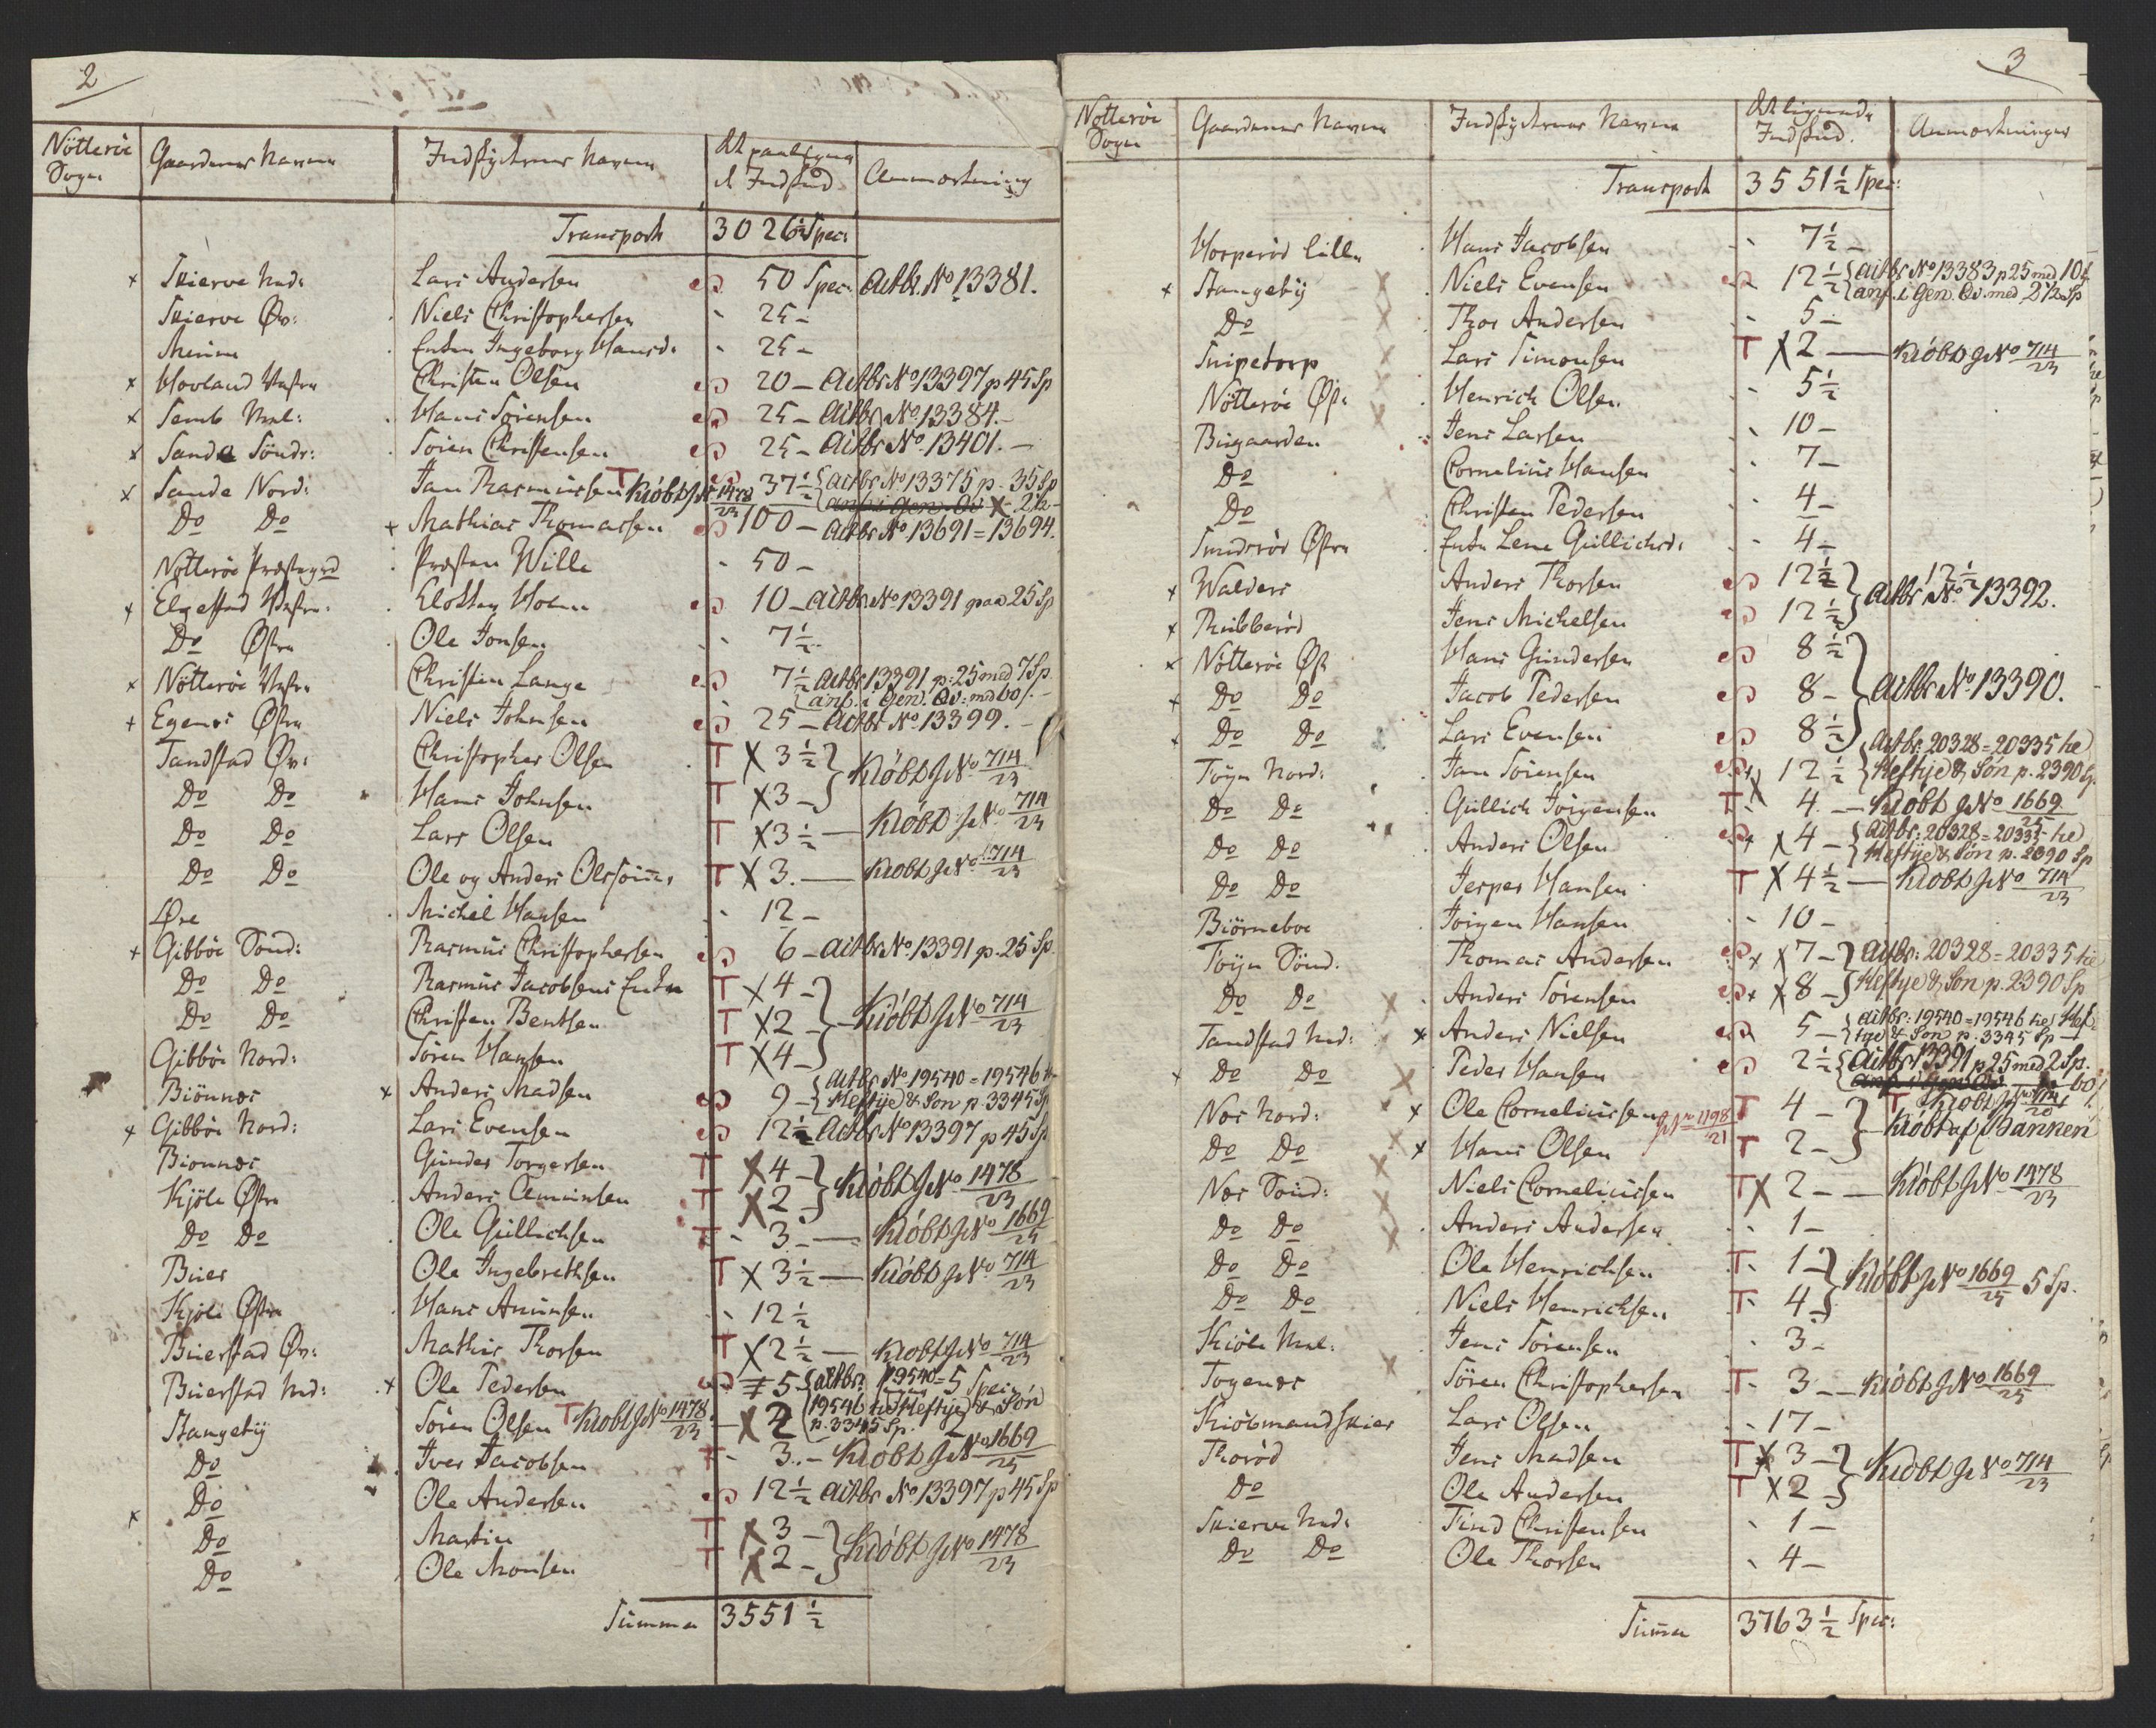 2
Nötteröe Sogn | Gaardenes Navne | Indskydernes Navne | Indskud | Anmærkning
Transport 3026½ Spec:
x Skierve Ned: Lars Andersen 50 Spec: Actbr. No 13381.
Skierve Øv: Niels Christophersen 25 –
Enken Ingeborg Hansd: 25 –
x Hovland Vestre Christen Olsen 20 – Actbr No 13397 p 45 Sp
x Semb Mel: Hans Sörensen 25 – Actbr No 13384. –
x Sande Söndr: Sören Christensen 25 – Actbr No 13401. –
x Sande Nord: Jan Rasmussen T Kiöbt J No 1478/23 37½ { Actbr No 13375 p. 35 Sp
anf. i Gen. Qv X 2½ –
Do Do x Mathias Thomassen 100 – Actbr No 13691 = 13694.
Nötteröe Præstegrd Præsten Wille 50 –
x Elgestad Vestre: Holm 10 – Actbr No 13391 paa 25 Sp
Do Östre Ole Jonsen 7½
x Nötteröe Vestre Christen Lange 7½ Actbr 13391 p: 25 med 7 Sp.
{ anf. i Gen. Qv: med 60 s. –
x Egenes Østre Niels Johnsen 25 – Actbr No 13399. –
Tandstad Øv: Christopher Olsen T X 3½ }
Do Do Hans Johnsen T X 3 – } Kiöbt J No 714/23
Do Do Lars Olsen T X 3½ — Kiöbt J No 714/23
Do Do Ole og Anders Olssön: T X 3. — Kiöbt J No 714/23
Øre Michel Hansen 12 –
x Gibböe Sönd: Rasmus Christophersen 6 – Actbr No 13391 p. 25 Sp.
Do Do Rasmus Jacobsens Enke T X 4 – }
Do Do Christen Bentsen T X 2 – } Kiöbt J No 714/23
Gibböe Nord: Sören Hansen T X 4 – }
Biönnes x Anders Madsen 9 – { Actbr No 19540 = 19546 he
Heftye & Sön p. 3345 Sp
x Gibböe Nord: Lars Evensen 12½ Actbr No 13397 p 45 Sp
Bionnes Gunder Torgersen T X 4 – }
Kjöle Østre Anders Amunsen T X 2 – } Kiöbt J No 1478/23
Do Do Ole Gullichsen T 3 – — Kiöbt J No 1669/25
Buer Ole Ingebrethsen T X 3½ — Kiöbt J No 714/23
Kjöle Østre Hans Amunsen 12½
Buerstad Øv: Mathis Thorsen T X 2½ — Kiöbt J No 714/23
Buerstad Ned: x Ole Pedersen 5 { Actbr: 19540 = 5 Spec:
19546 he Heftye & Sön
Stangebÿ Sören Olsen T Kiöbt J No 1478/23 — X 2 p. 3345 Sp.
Do Iver Jacobsen T 3. – Kiöbt J No 1669/25
x Do Ole Andersen 12½ Actbr No 13397 p 45 Sp
Do Martin T X 3 – }
Do Ole Monsen T X 2 – } Kiöbt J No 1478/23
Summa 3551½
3
Nötteröe Sogn | Gaardenes Navne | Indskydernes Navne | Indskud. | Anmærkninger
Transport 3551½ Spec:
Lille Hans Jacobsen 7½ –
x Stangebÿ Niels Evensen 12½ { Actbr No 13383 p 25 med 10
anf. i Gen. Qv. med 2½ Sp
Do Thor Andersen 5 –
Snipetorp Lars Simonsen T X 2 — Kiöbt J No 714/23
Nötteröe Øst: Henrich Olsen 5½
Bugaarden Jens Larsen 10 –
Do Cornelius Hansen 7 –
Do Christen Pedersen 4 –
Smideröd Østre Enke Lene Gullichsd: 4 –
x Walders Anders Thorsen 12½ } 12½
x Ribberöd Jens Michelsen 12½ } Actbr No 13392.
x Nötteröe Øst Hans Gundersen 8½ }
x Do Do Jacob Pedersen 8 – } Actbr No 13390.
x Do Do Lars Evensen 8½ }
Töyn Nord: Jan Sörensen 12½ { Actbr: 20328 = 20335 he
Heftye & Sön p. 2390 Sp.
Do Do Gullich Jörgensen T 4. — Kiöbt J No 1669/25
Do Do Anders Olsen X 4 – { Actbr: 20328 = 20335 he
Heftye & Sön p. 2390 Sp
Do Do Jesper Hansen T X 4½ — Kiöbt J No 714/23
Biörneboe Jörgen Hansen 10 –
Töyn Sönd: Thomas Andersen X 7 – } Actbr: 20328 = 20335 he
Do Do Anders Sörensen X 8 – } Heftye & Sön p. 2390 Sp
Tandstad Ned: x Anders Nielsen 5 – { Actbr: 19540 = 19546 he Hef-
tye & Sön p. 3345 Sp –
x Do Do Peder Hansen 2½ { Actbr 13391 p 25 med 2 Sp.
anf. i Gen Qv 60
Nes Nord: x Ole Corneliussen J No 1198/21 T 4 – } T Kiöbt J No 714/20
Do Do x Hans Olsen T 2 – } Kiöbt af Banken
Nes Sönd: Niels Corneliussen T X 2 – — Kiöbt J No 1478/23
Do Do Anders Andersen 1 –
Do Do Ole Henrichsen T 1 – }
Do Do Niels Henrichsen T 4 – } Kiöbt J No 1669/25 5 Sp.
Kiöle Mel: Jens Sörensen 3 –
Togenes Sören Christophersen T 3 – — Kiöbt J No 1669/25
Kiöbmandskier Lars Olsen 17 –
Thoröd Jens Madsen T X 3 – }
Do Ole Andersen T X 2 – } Kiöbt J No 714/23
Skierve Ned: Find Christensen 1 –
Do Do Ole Thorsen 4 –
Summa 3763½ Spec: